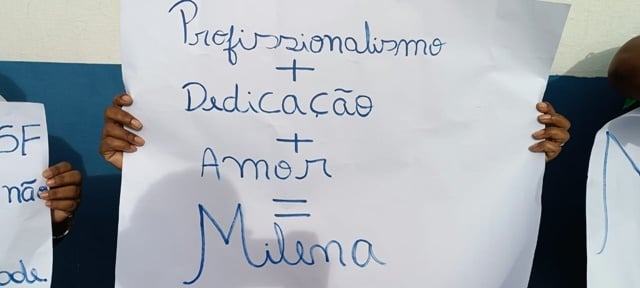 Profissionalismo
+
Dedicação
+
Amor
=
Milena
SF
não
ode